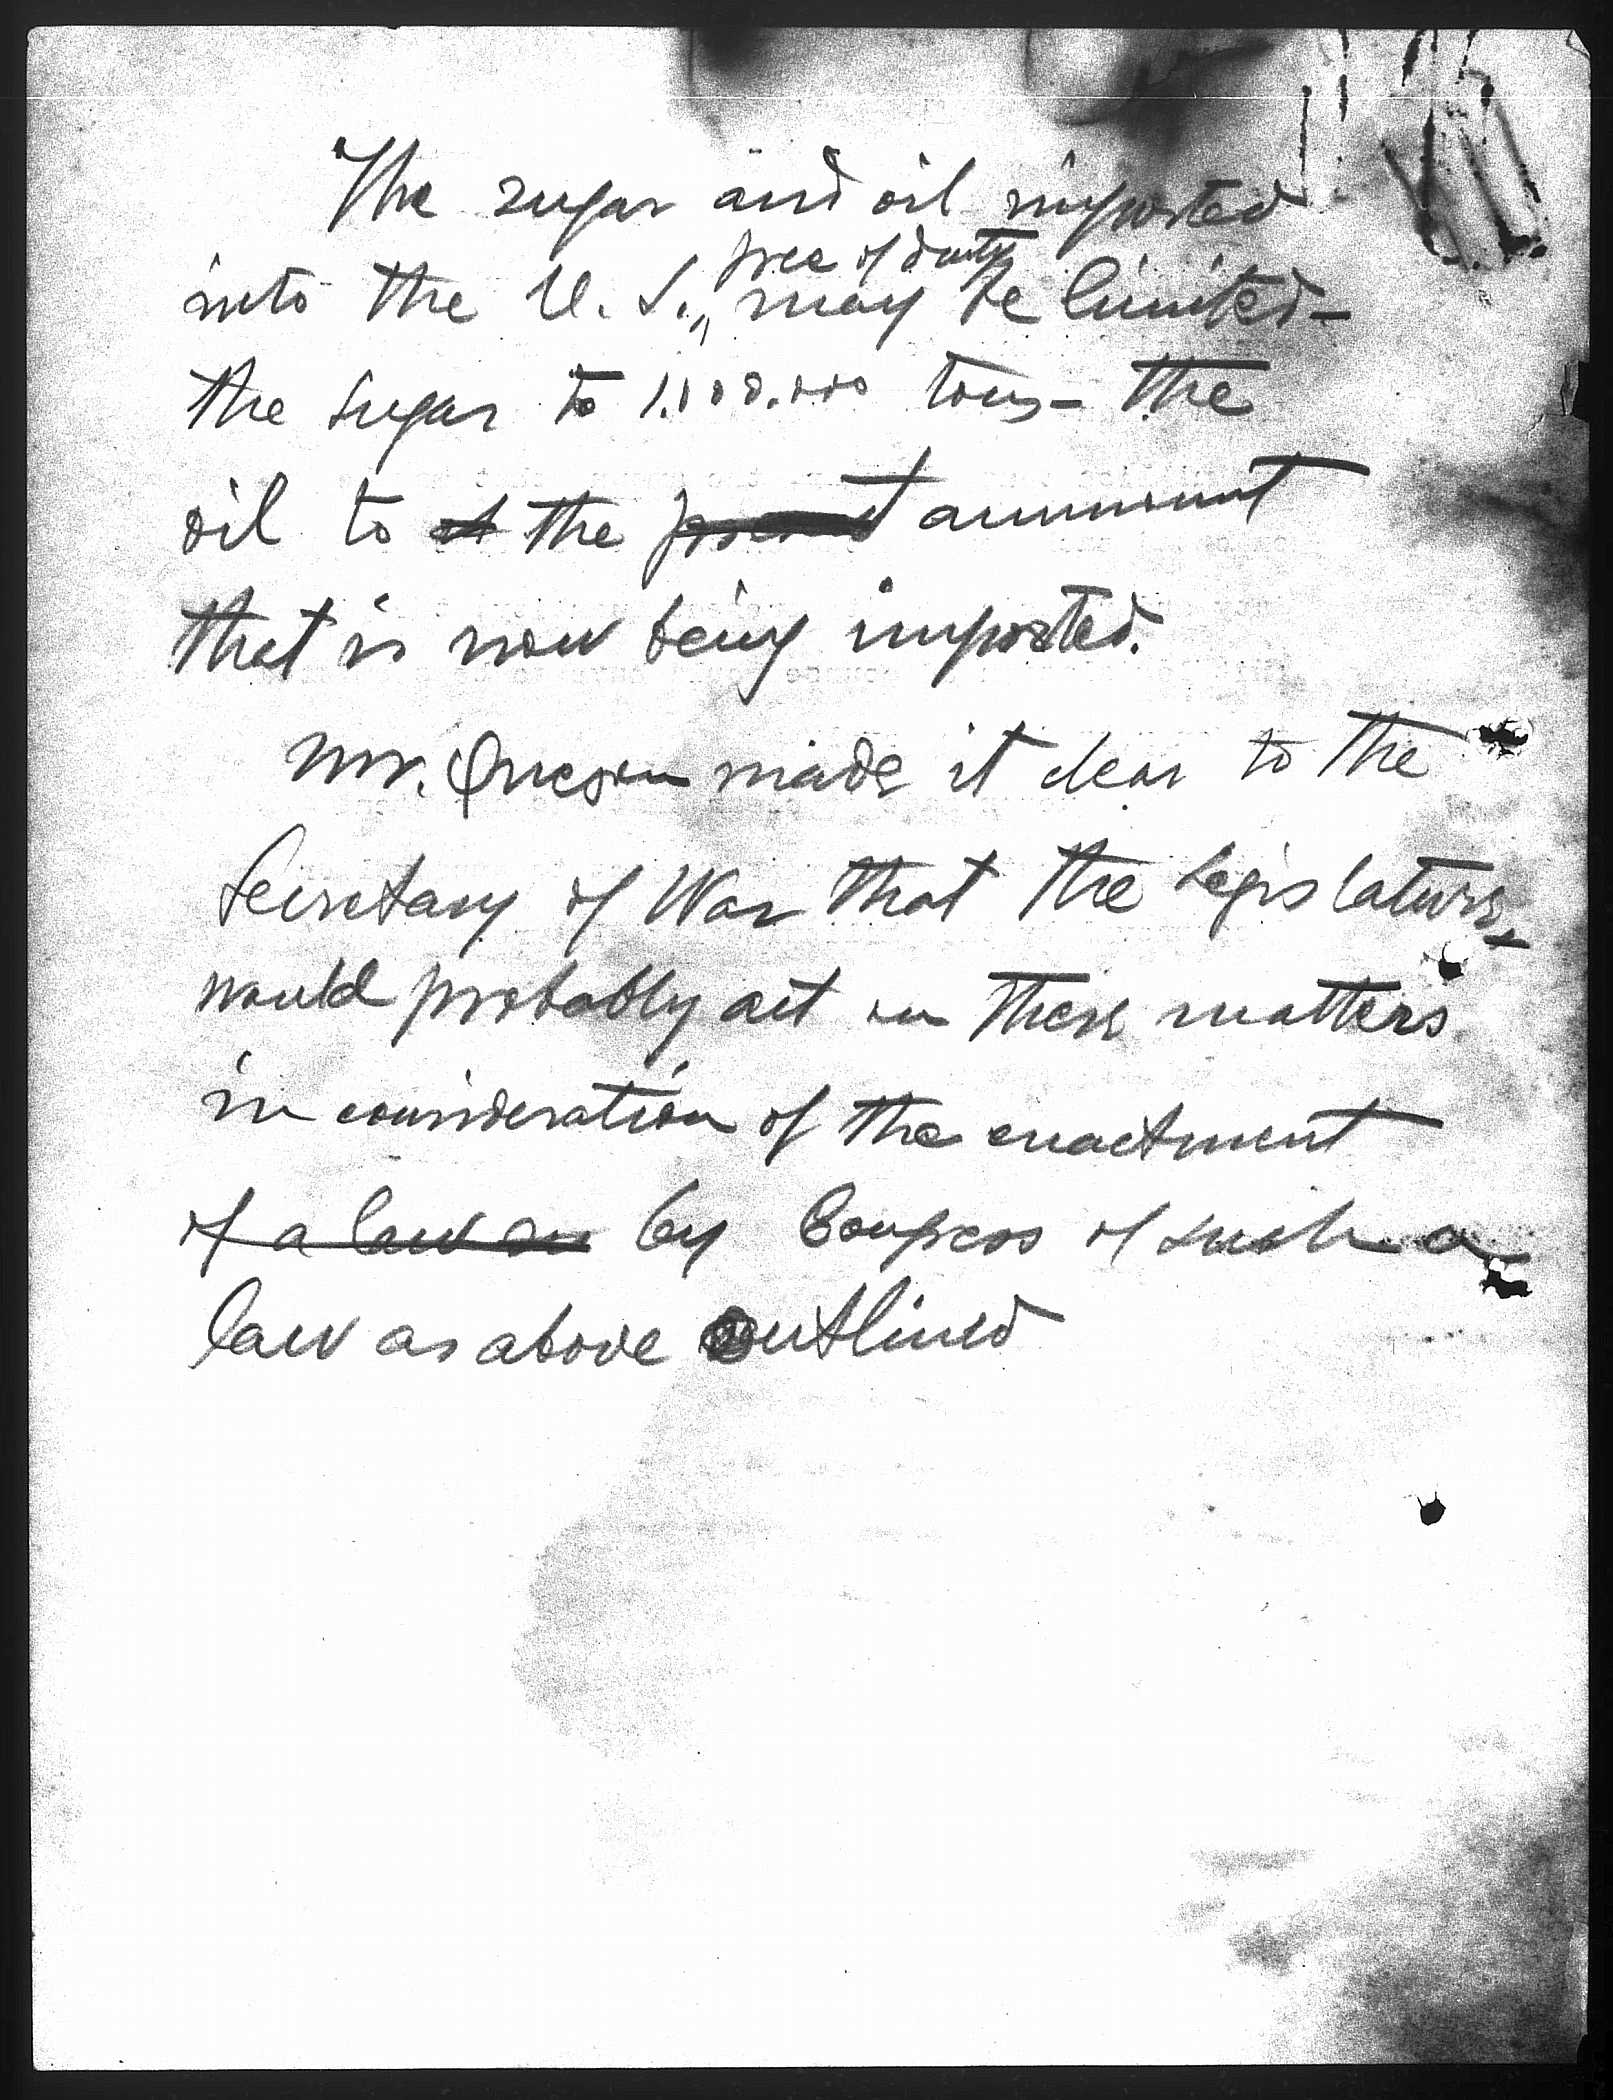 The sugar and oil imported
free of duty
into the U. S., may be limited -
the sugar to 1.000.000 tons - the
oil to the present ammount
that is now being imported.
Mr. Quezon made it clear to the
Secretary of War that the Legislature
would probably act on these matters
in consideration of the enactment
of a law by Congress of such a
law as above outlined